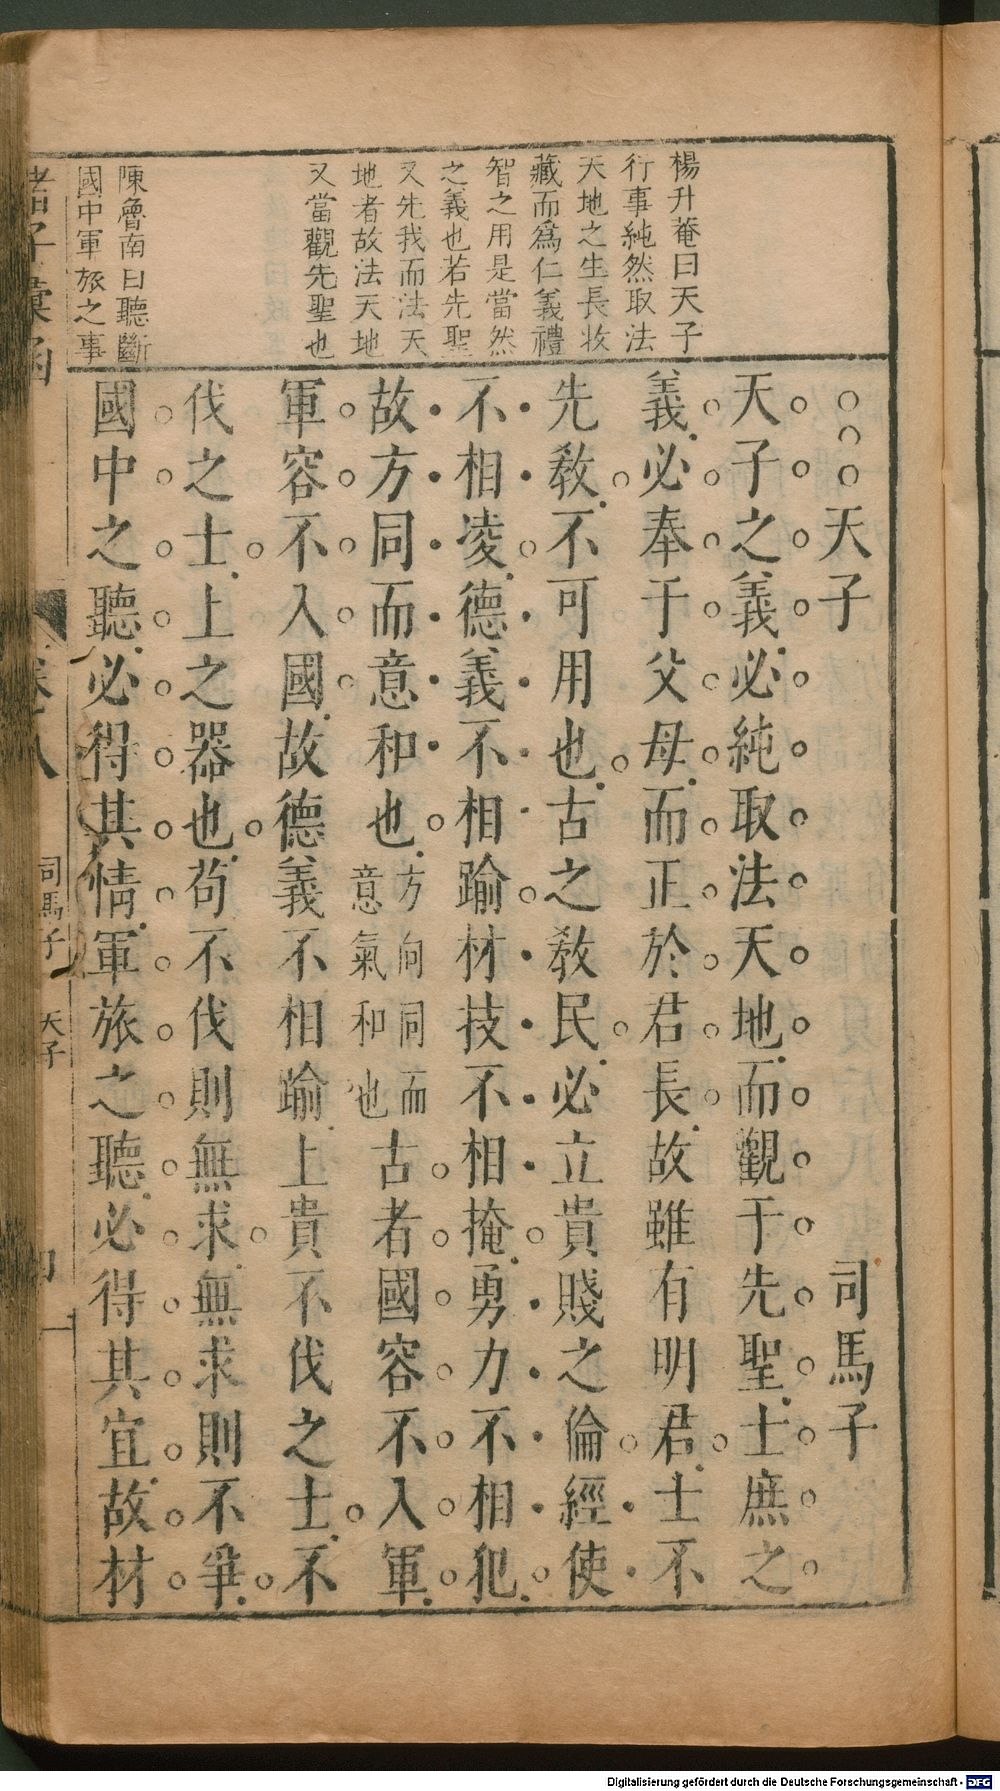 楊升菴曰天子
行事純然取法
天地之生長收
藏而爲仁義禮
智之用是當然
之義也若先聖
又先我而法天
地者故法天地
又當觀先聖也
陳魯南曰聽斷
國中軍旅之事
天子 司馬子
天子之義必純取法天地而觀于先聖士庶之
義必奉于父母而正於君長故雖有明君士不
先教不可用也古之教民必立貴賤之倫經使
不相凌德義不相踰材技不相掩勇力不相犯
故方同而意和也方向同而意氣和也古者國容不入軍
軍容不入國故德義不相踰上貴不伐之士不
伐之士上之器也苟不伐則無求無求則不爭
國中之聽必得其情軍旅之聽必得其宜故材
諸子彙函 卷之八 司馬子 天子
Digitalisierung gefördert durch die Deutsche Forschungsgemeinschaft - DFG